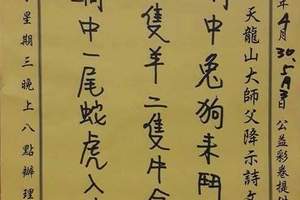 年4月30.5月3日公益彩卷提供
天龍山大師父降示詩文
中兔狗來鬥
隻羊二隻牛合
中一尾蛇虎入
星期三晚上八點辦理